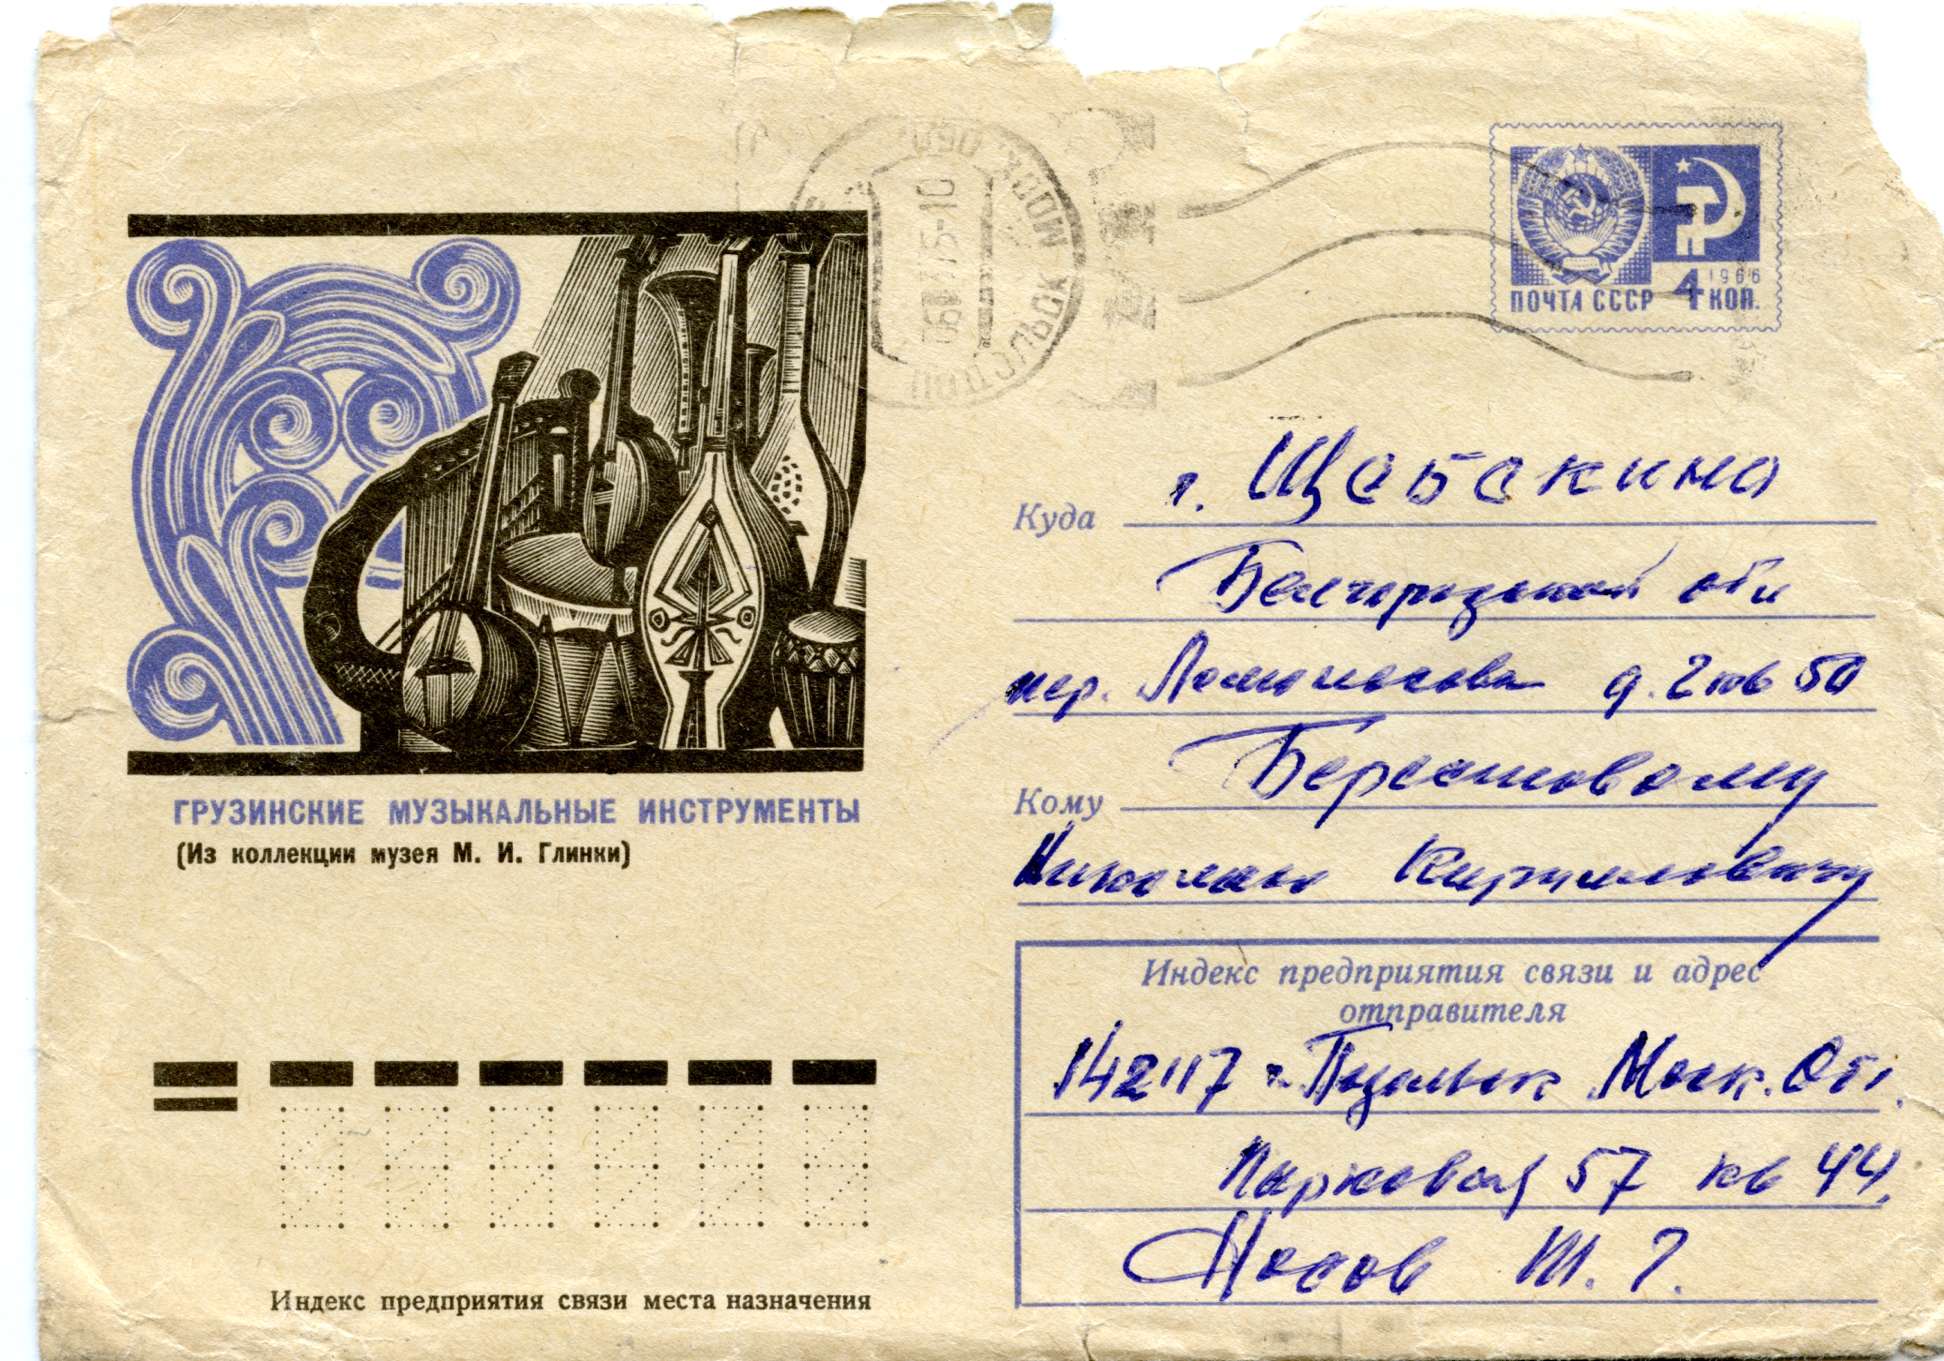 МОСК. ОБЛ.
ПОДОЛЬСК
ПОЧТА СССР
1966
4 КОП.
ГРУЗИНСКИЕ МУЗЫКАЛЬНЫЕ ИНСТРУМЕНТЫ
(Из коллекции музея М. И. Глинки)
Куда г. Щебекино
Белгородской обл
пер. Ломоносова д. 2 кв 50
Кому Берестовому
Николаю Кирилловичу
Индекс предприятия связи и адрес
отправителя
142117 г. Подольск Моск. Обл.
Парковая 57 кв 44.
Носов
Индекс предприятия связи места назначения